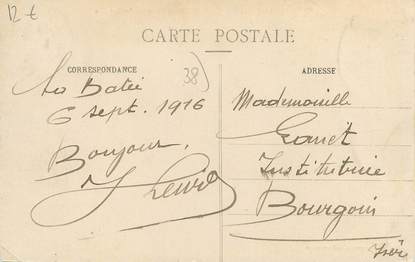 12 €
CARTE POSTALE
CORRESPONDANCE
38)
ADRESSE
La Batie
6 sept. 1916
Bonjour,
Mademoiselle
Institutrice
Bourgoin
Isère